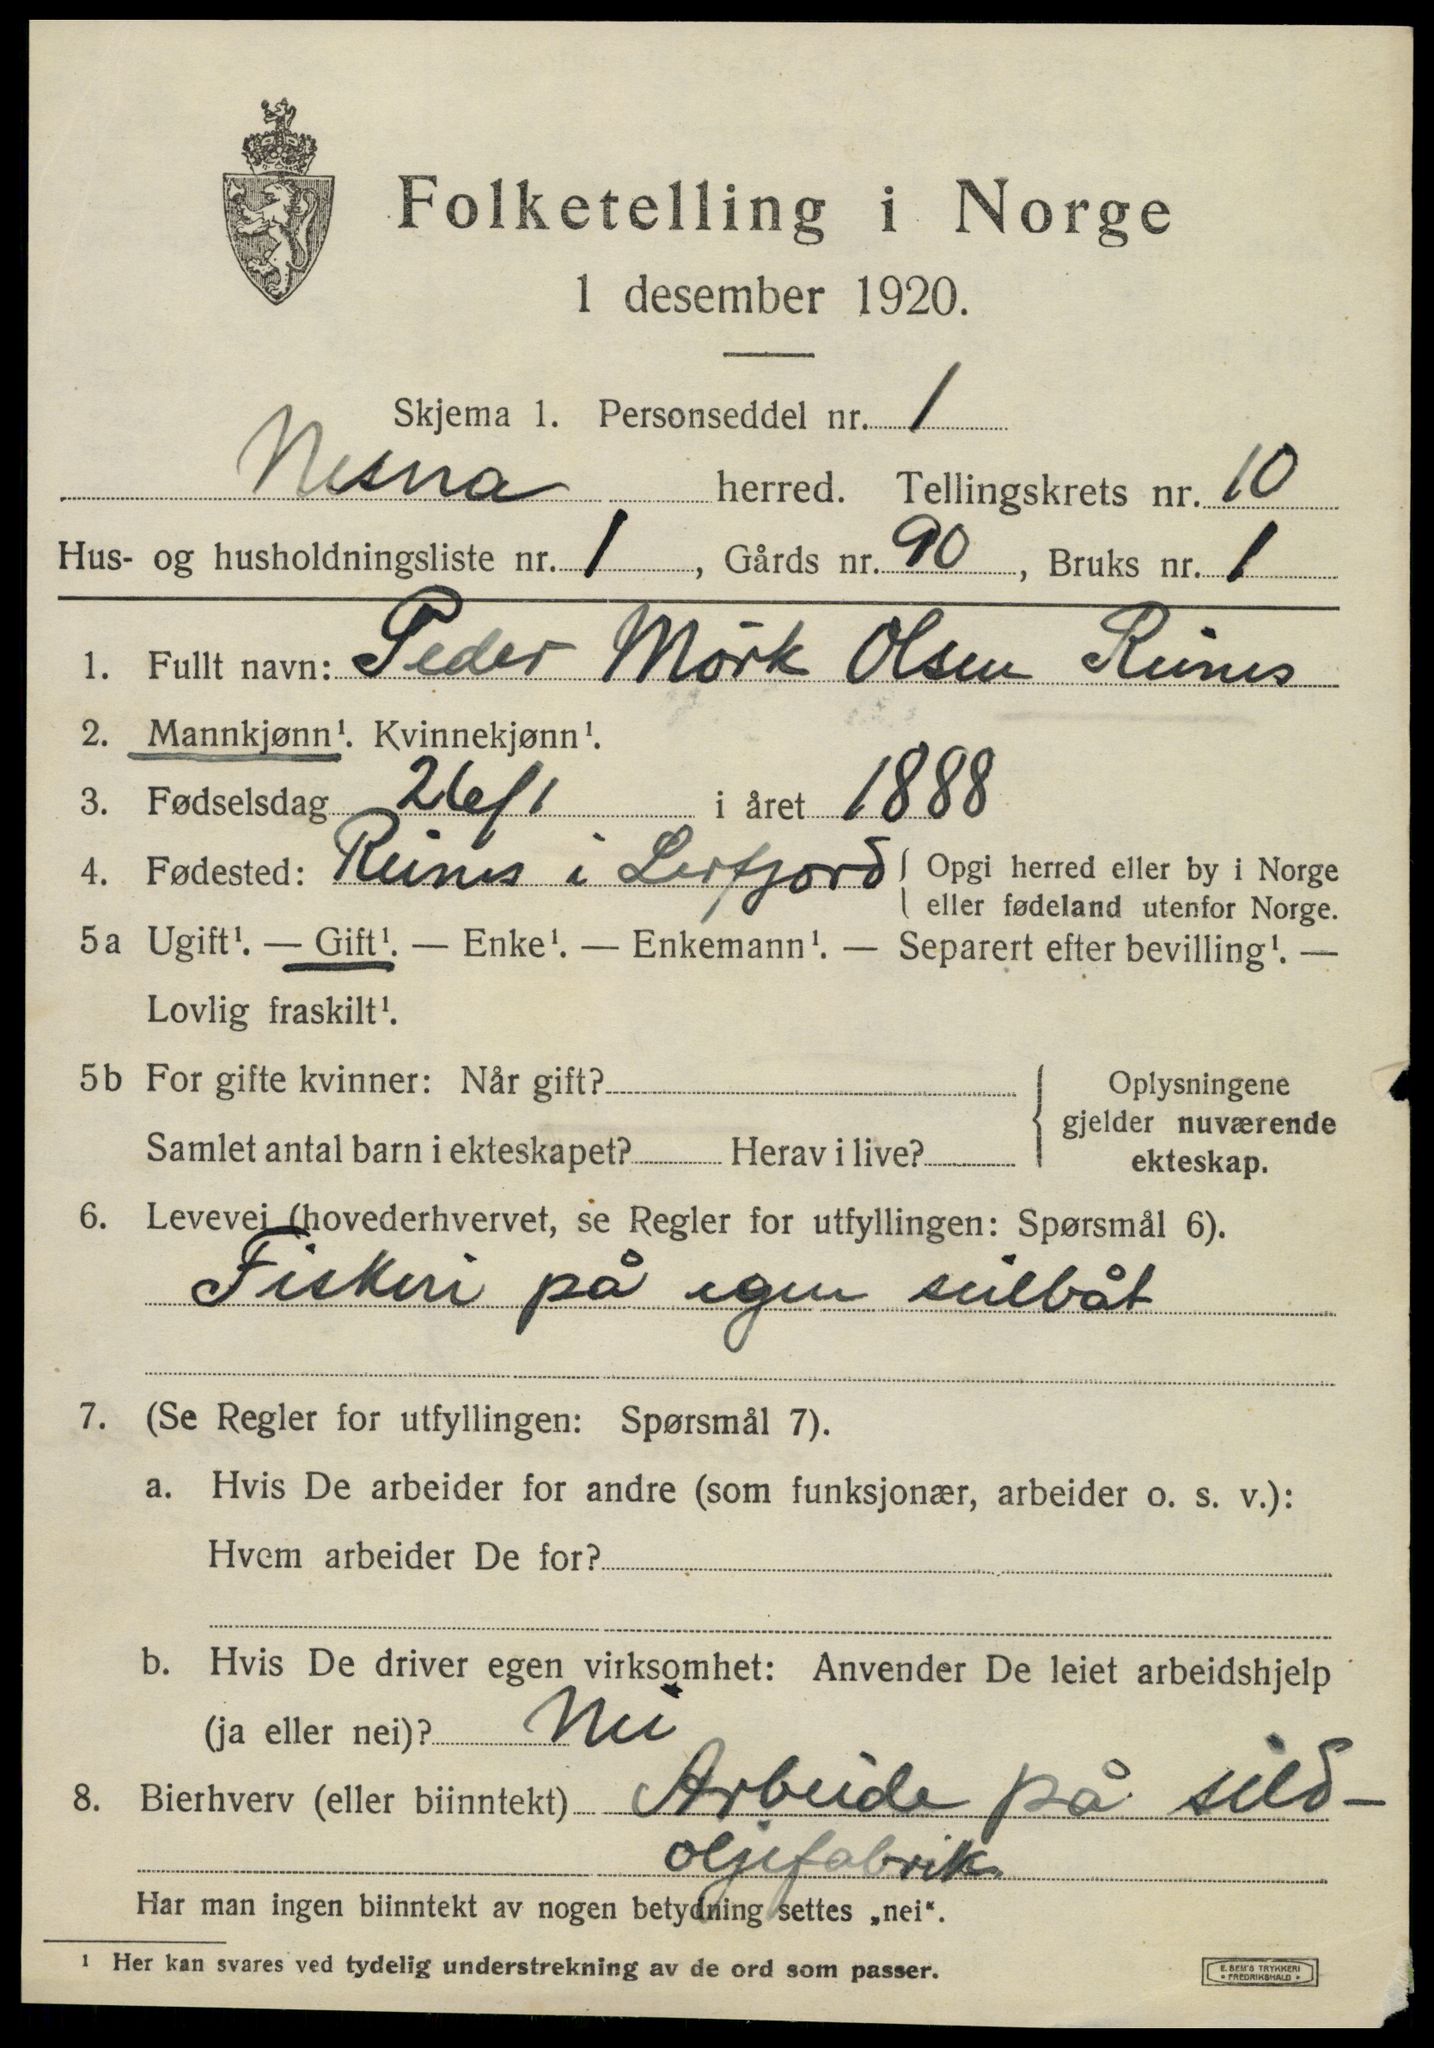 Folketelling i Norge
1 desember 1920.
Skjema 1. Personseddel nr. 1
Nesna herred. Tellingskrets nr. 10
Hus- og husholdningsliste nr. 1, Gårds nr. 90, Bruks nr. 1
1. Fullt navn: Peder Mörk Olsen Reines
2. Mannkjønn¹. Kvinnekjønn¹.
3. Fødselsdag 26/1 i året 1888
4. Fødested: Reines i Leirfjord { Opgi herred eller by i Norge
eller fødeland utenfor Norge.
5a Ugift¹. — Gift¹. — Enke¹. — Enkemann¹. — Separert efter bevilling¹. —
Lovlig fraskilt¹.
5b For gifte kvinner: Når gift? { Oplysningene
gjelder nuværende
Samlet antal barn i ekteskapet? Herav i live? ekteskap.
6. Levevei (hovederhvervet, se Regler for utfyllingen: Spørsmål 6).
Fiskeri på egen seilbåt
7. (Se Regler for utfyllingen: Spørsmål 7).
a. Hvis De arbeider for andre (som funksjonær, arbeider o. s. v.):
Hvem arbeider De for?
b. Hvis De driver egen virksomhet: Anvender De leiet arbeidshjelp
(ja eller nei)? Nei
8. Bierhverv (eller biinntekt) Arbeide på sild-
oljefabrik.
Har man ingen biinntekt av nogen betydning settes „nei“.
¹ Her kan svares ved tydelig understrekning av de ord som passer.
E. SEM'S TRYKKERI
• FREDRIKSHALD •